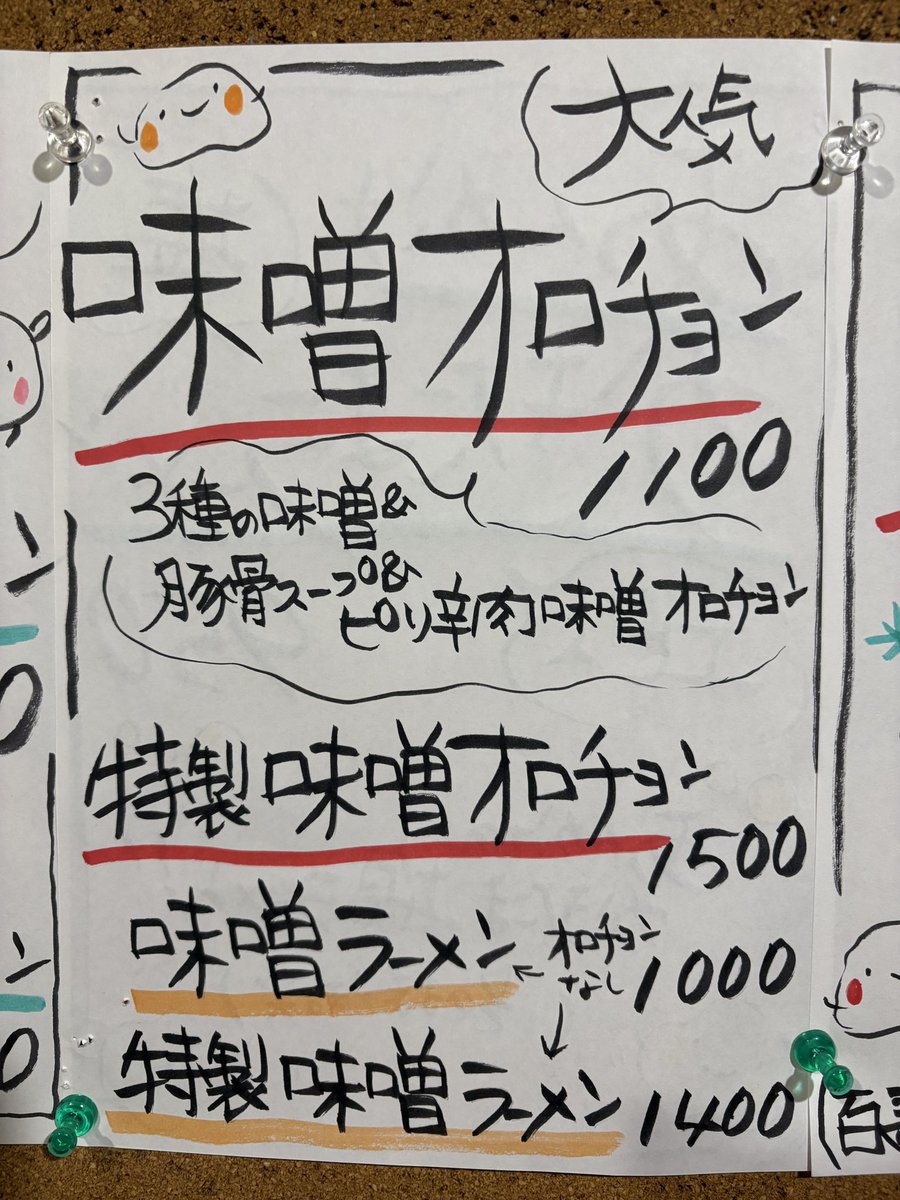 大人気
味噌オロチョン
1100
3種の味噌&
豚骨スープ&
ピリ辛肉味噌オロチョン
特製味噌オロチョン
1500
味噌ラーメン ← オロチョン
なし 1000
↓
特製味噌ラーメン 1400